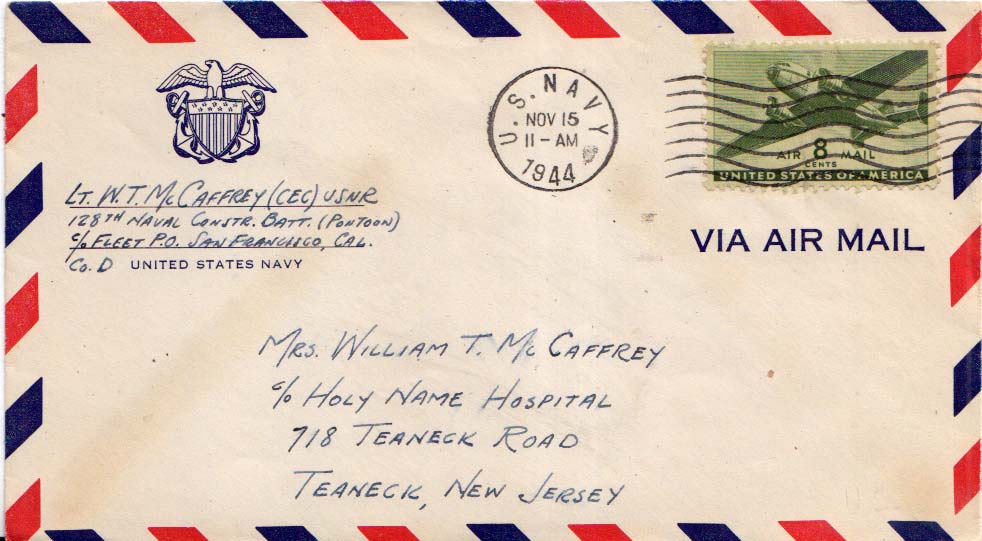 U.S. NAVY
NOV 15
11-AM
1944
AIR 8 MAIL
CENTS
UNITED STATES OF AMERICA
LT. W. T. McCAFFREY (CEC) USNR
128TH NAVAL CONSTR. BATT. (PONTOON)
c/o FLEET P.O. SAN FRANCISCO, CAL.
Co. D UNITED STATES NAVY
VIA AIR MAIL
MRS. WILLIAM T. McCAFFREY
c/o HOLY NAME HOSPITAL
718 TEANECK ROAD
TEANECK, NEW JERSEY